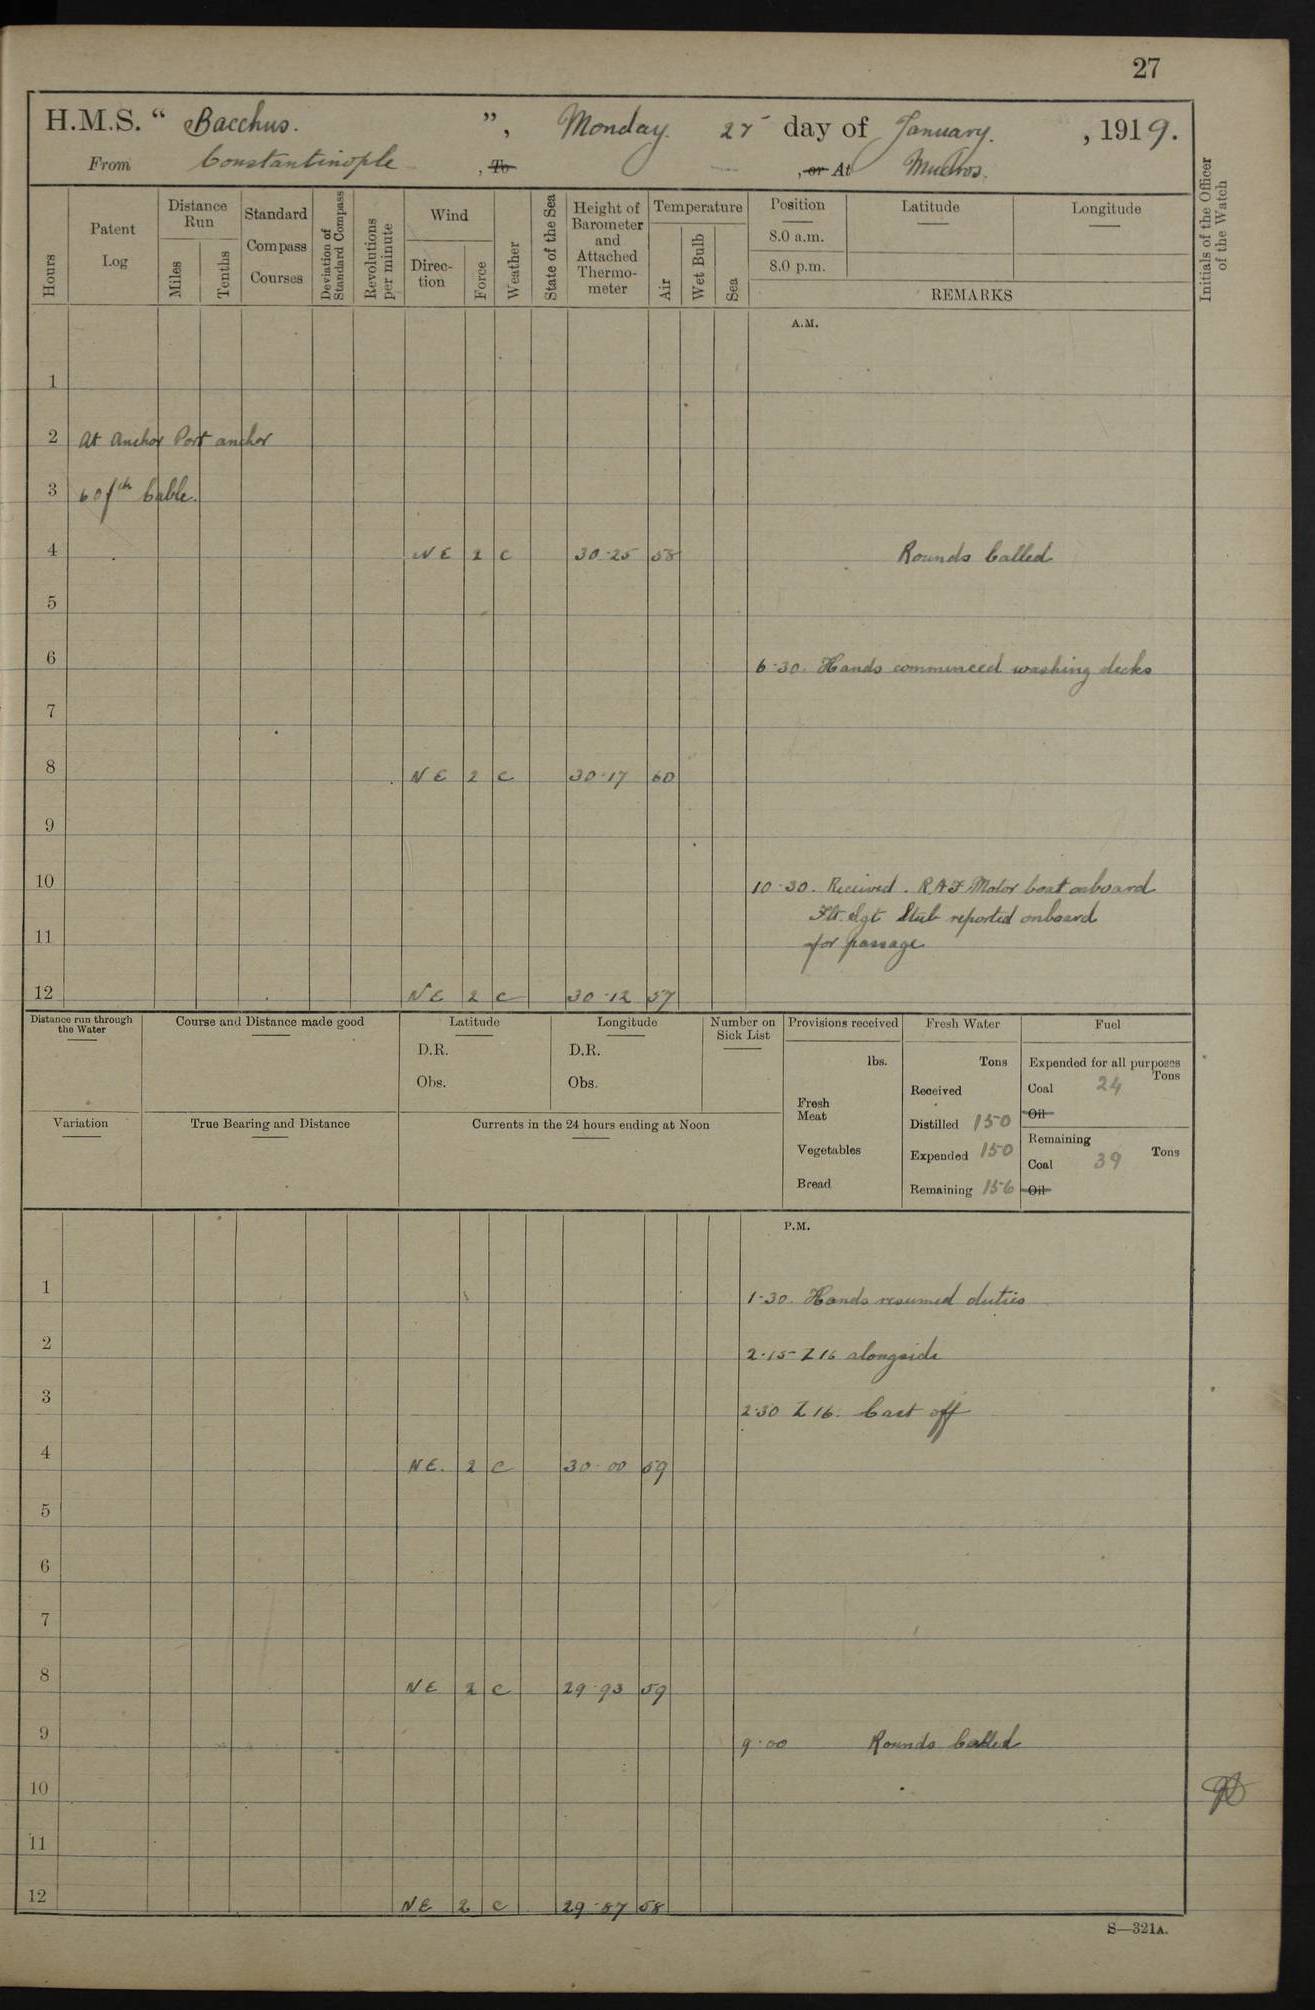 27
H.M.S. “ Bacchus. ”, Monday. 27 day of January. , 1919.
From Constantinople , To , or At Mudros.
Hours
Patent Log
Distance Run
Miles
Tenths
Standard Compass Courses
Deviation of Standard Compass
Revolutions per minute
Wind
Direction
Force
Weather
State of the Sea
Height of Barometer and Attached Thermometer
Temperature
Air
Wet Bulb
Sea
Position
8.0 a.m.
8.0 p.m.
Latitude
Longitude
REMARKS
Initials of the Officer of the Watch
A.M.
1
2 At Anchor Port anchor
3 60 fth Cable.
4 NE 2 c 30·25 58 Rounds Called
5
6 6·30. Hands commenced washing decks
7
8 NE 2 c 30·17 60
9
10 10·30. Received. RAF Motor boat onboard
Flt. Sgt Stub reported onboard
11 for passage
12 NE 2 c 30·12 57
Distance run through the Water
Course and Distance made good
Latitude
D.R.
Obs.
Longitude
D.R.
Obs.
Number on Sick List
Provisions received
lbs.
Fresh Meat
Vegetables
Bread
Fresh Water
Tons
Received
Distilled 150
Expended 150
Remaining 156
Fuel
Expended for all purposes
Tons
Coal 24
Oil
Remaining
Coal 39 Tons
Oil
Variation
True Bearing and Distance
Currents in the 24 hours ending at Noon
P.M.
1 1·30. Hands resumed duties
2 2·15 Z 16 alongside
3 2·30 Z 16. Cast off
4 NE. 2 c 30·00 59
5
6
7
8 NE 2 c 29·93 59
9 9·00 Rounds Called
10
11
12 NE 2 c 29·87 58
S—321A.